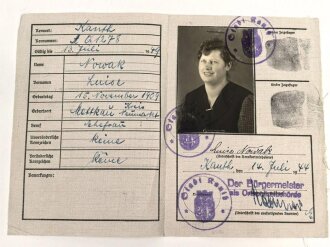 Kennort: Kanth
Kennnummer: A 01278
Gültig bis 13. Juli 1949
Name Nowak
Vornamen Luise
Geburtstag 15. November 1909
Geburtsort Mettkau Kreis
Neumarkt
Beruf Ehefrau
Unveränderliche
Kennzeichen keine
Veränderliche
Kennzeichen keine
Bemerkungen:
Stadt Kanth
Stadt Kanth
Stadt Kanth
Luise Nowak
(Unterschrift des Kennkarteninhabers)
Kanth, 14. Juli 1944
Der Bürgermeister
als Ortspolizeibehörde
(Unterschrift des ausfertigenden Beamten)